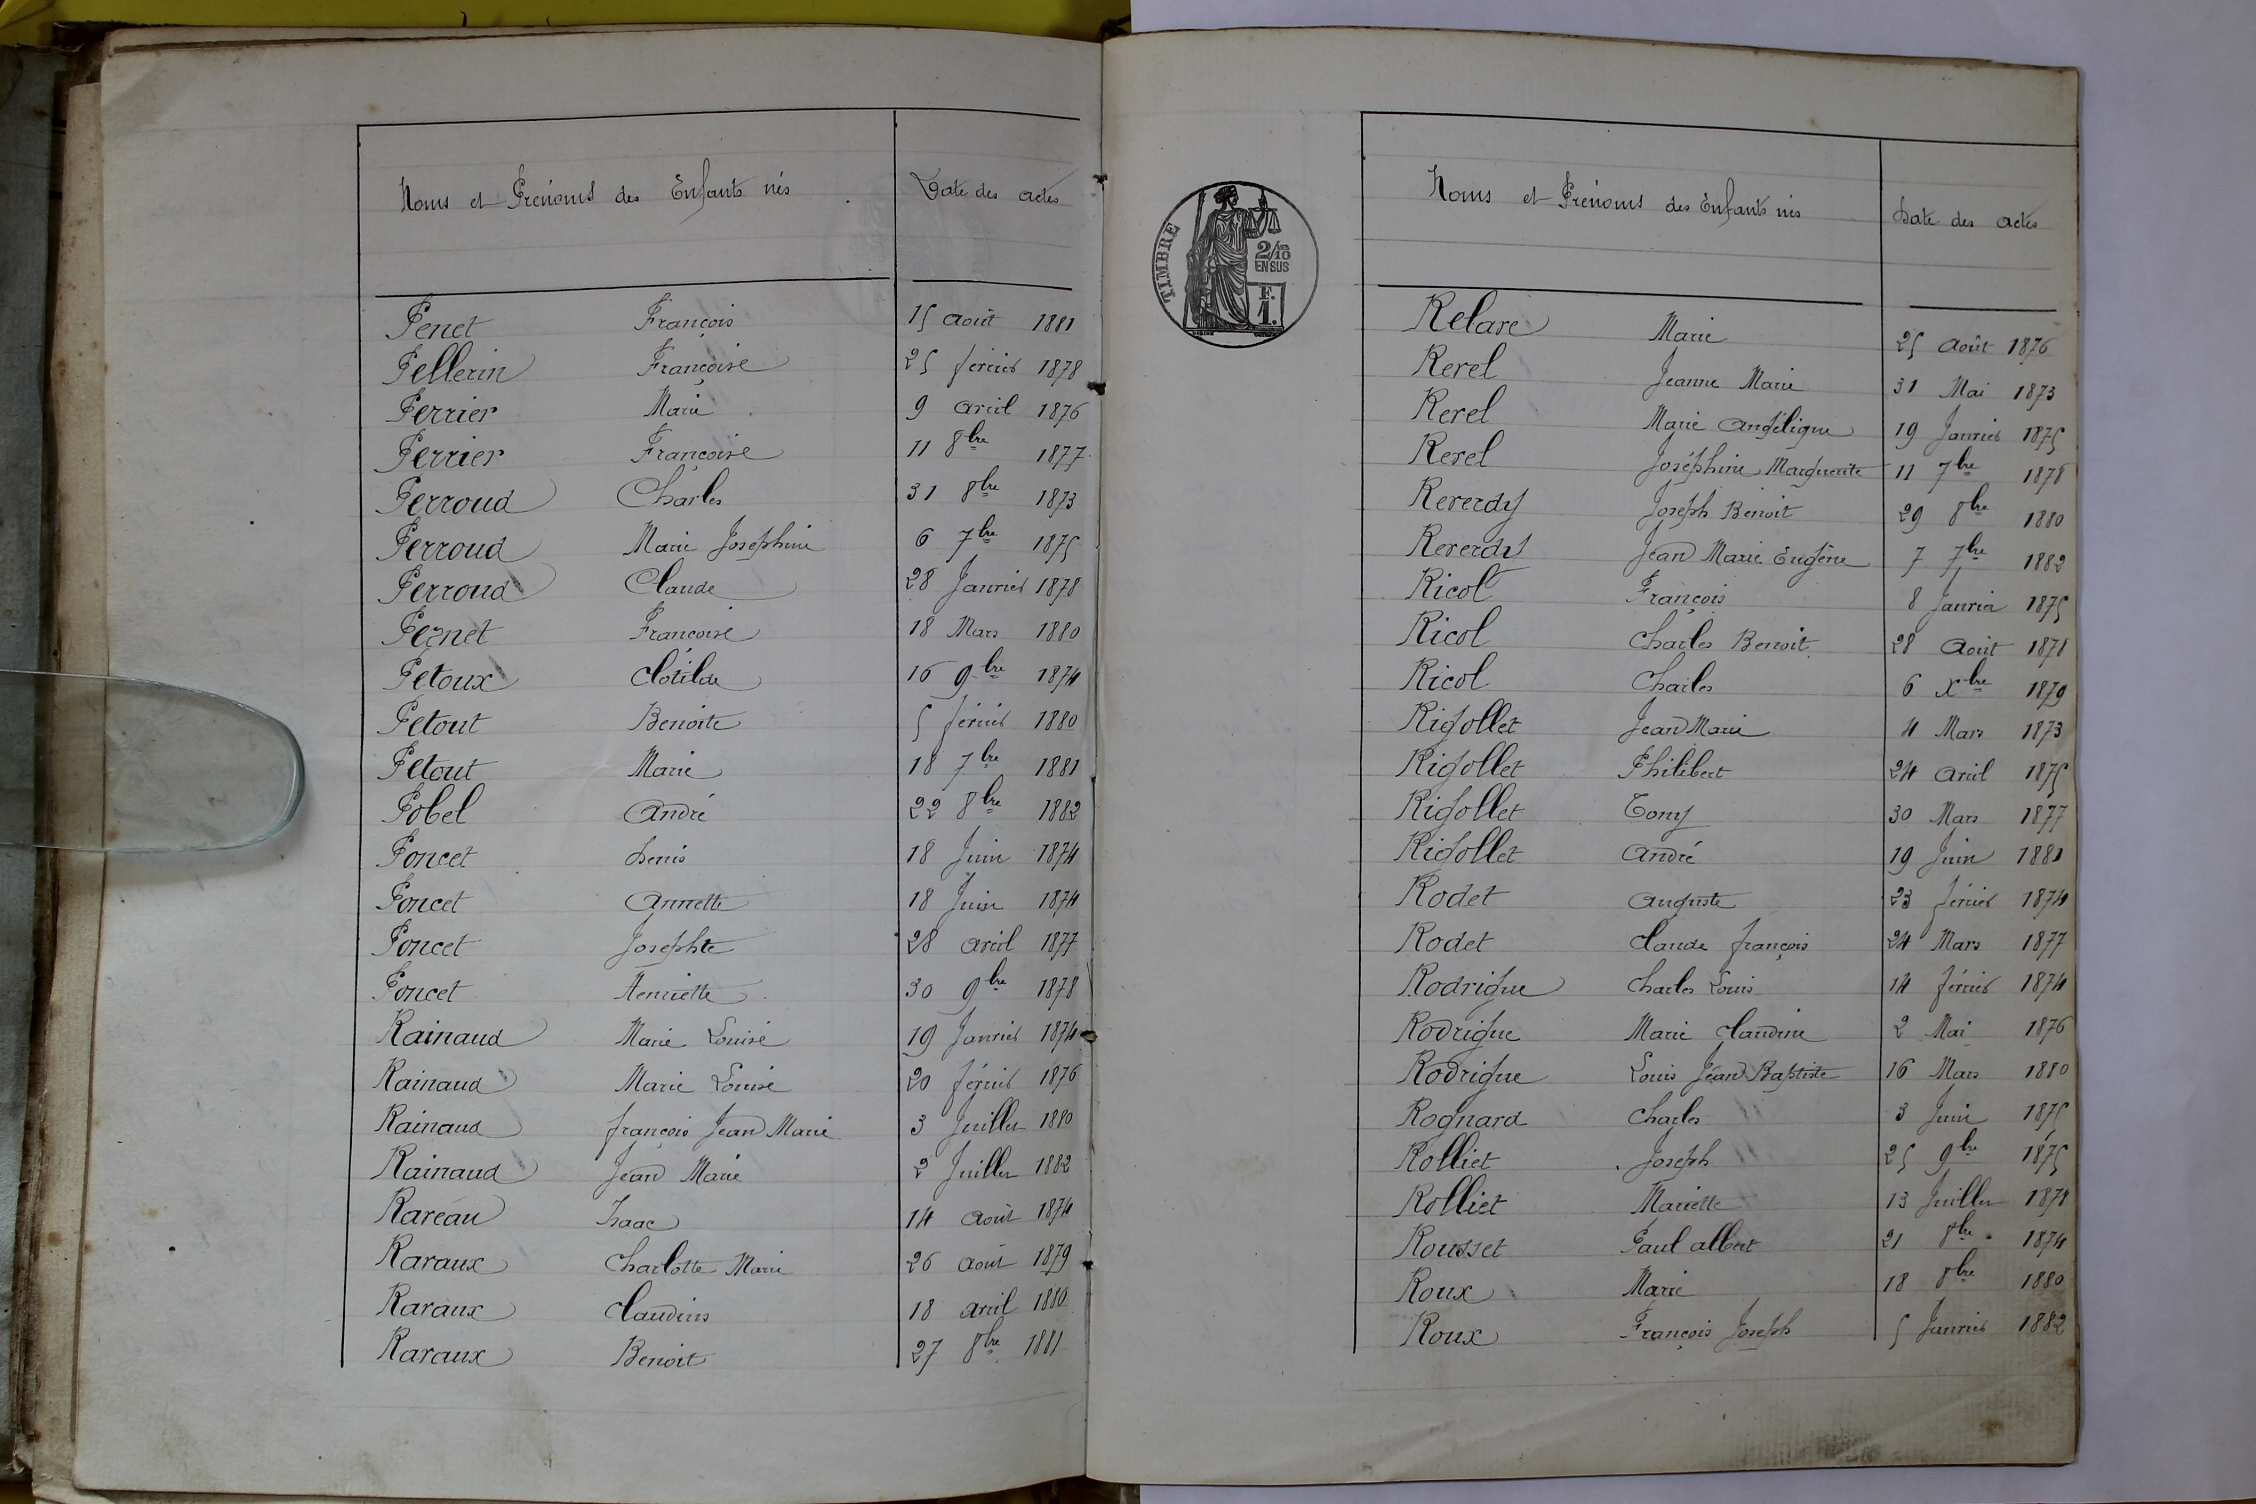 Noms et Prénoms des Enfants nés Date des actes
Penet François 15 août 1881
Pellerin Françoise 25 février 1878
Perrier Marie 9 avril 1876
Perrier Françoise 11 8bre 1877
Perroud Charles 31 8bre 1873
Perroud Marie Josephine 6 7bre 1875
Perroud Claude 28 Janvier 1878
Pernet Françoise 18 Mars 1880
Petoux Clotilde 16 9bre 1874
Petout Benoite 5 février 1880
Petout Marie 18 7bre 1881
Pobel André 22 8bre 1882
Poncet Denis 18 Juin 1874
Poncet Annette 18 Juin 1874
Poncet Josephte 28 avril 1877
Poncet Henriette 30 9bre 1878
Rainaud Marie Louise 19 Janvier 1874
Rainaud Marie Louise 20 février 1876
Rainaud françois Jean Marie 3 Juillet 1880
Rainaud Jean Marie 2 Juillet 1882
Raveau Isaac 14 août 1874
Ravaux Charlotte Marie 26 août 1879
Ravaux Claudius 18 avril 1880
Ravaux Benoit 27 8bre 1881
TIMBRE
2/10 EN SUS
F. 1.
Noms et Prénoms des Enfants nés Date des actes
Relave Marie 25 août 1876
Revel Jeanne Marie 31 Mai 1873
Revel Marie Angélique 19 Janvier 1875
Revel Joséphine Marguerite 11 7bre 1878
Reverdy Joseph Benoit 29 8bre 1880
Reverdy Jean Marie Eugène 7 7bre 1882
Ricol François 8 Janvier 1875
Ricol Charles Benoit 28 Août 1878
Ricol Charles 6 Xbre 1879
Rigollet Jean Marie 4 Mars 1873
Rigollet Philibert 24 avril 1875
Rigollet Tony 30 Mars 1877
Rigollet André 19 Juin 1881
Rodet Auguste 23 février 1874
Rodet Claude françois 24 Mars 1877
Rodrigue Charles Louis 14 février 1874
Rodrigue Marie Claudine 2 Mai 1876
Rodrigue Louis Jean Baptiste 16 Mars 1880
Rognard Charles 3 Juin 1875
Rolliet Joseph 25 9bre 1875
Rolliet Mariette 13 Juillet 1878
Rousset Paul albert 21 8bre 1874
Roux Marie 18 8bre 1880
Roux François Joseph 5 Janvier 1882